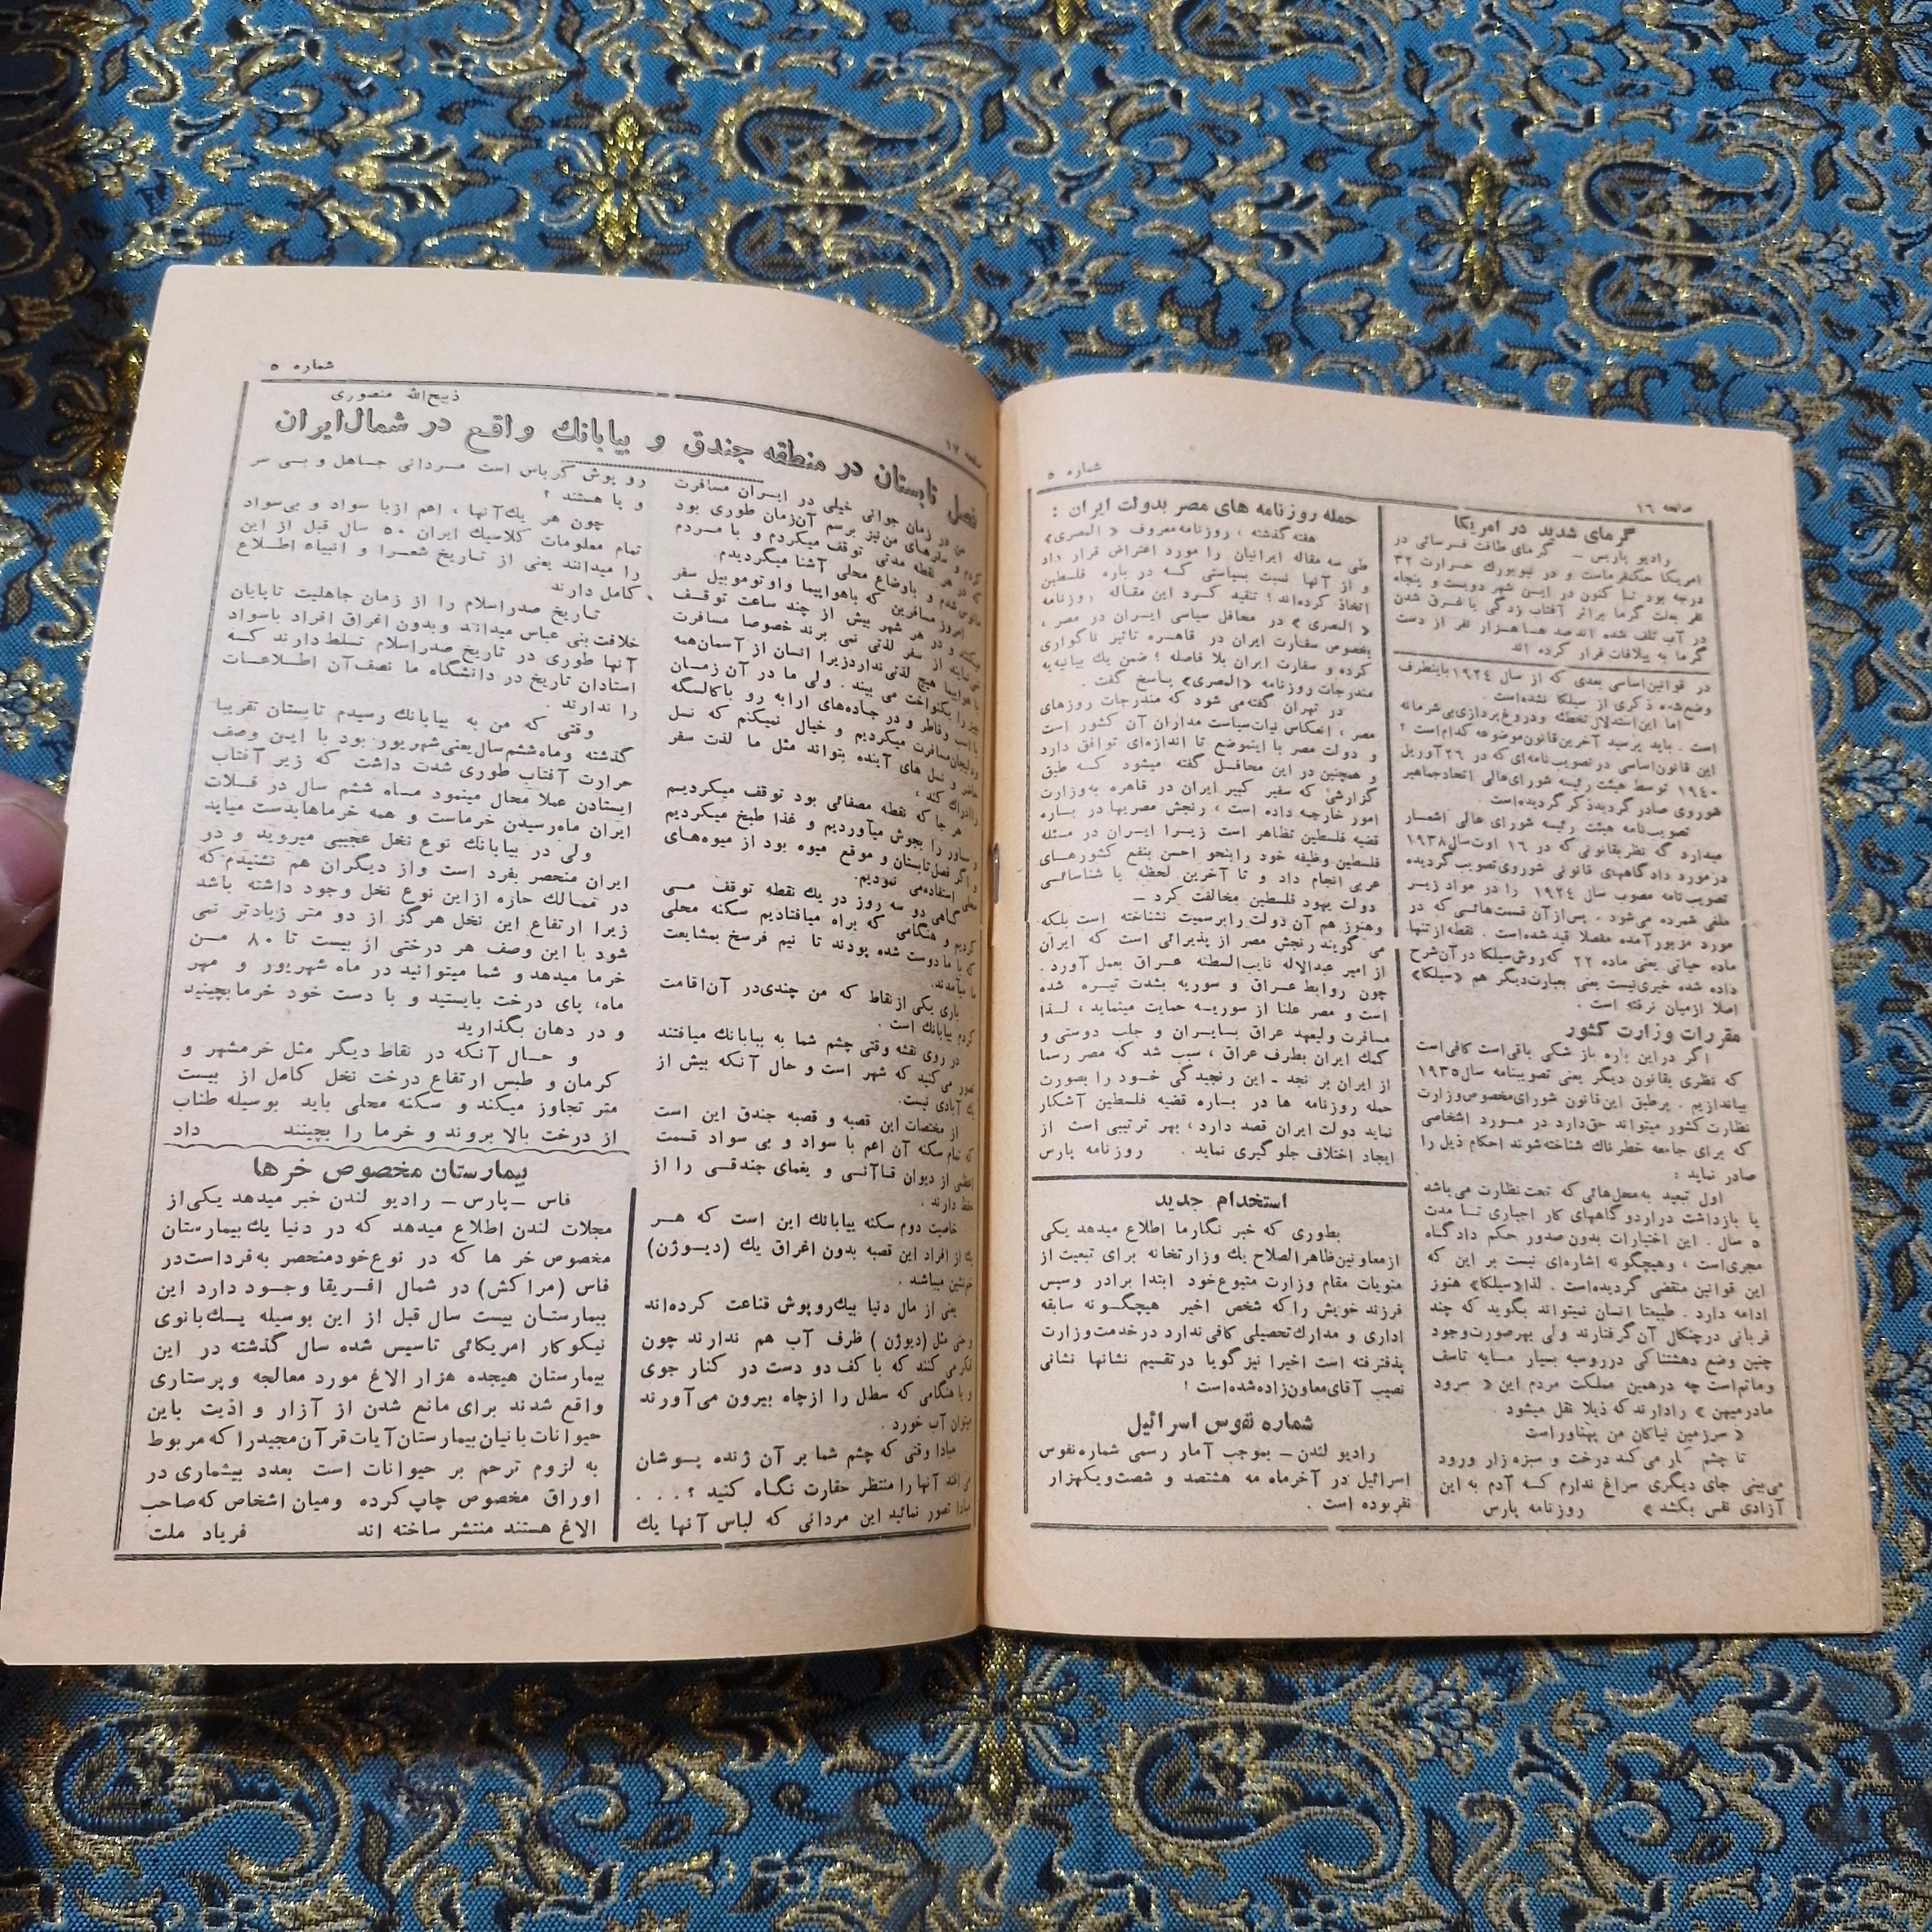 صفحه ۱۶
شماره ۵
گرمای شدید در امریکا
رادیو پاریس - گرمای طاقت فرسائی در
امریکا حکمفرماست و در نیویورك حرارت ۳۲
درجه بود تا کنون در این شهر دویست و پنجاه
نفر بعلت گرما براثر آفتاب زدگی یا غرق شدن
در آب تلف شده اند صد ها هزار نفر از دست
گرما به ییلاقات فرار کرده اند
در قوانین اساسی بعدی که از سال ۱۹۲٤ باینطرف
وضع شده ذکری از سیلکا نشده است .
اما این استدلال تخطئه ودروغ پردازی بی شرمانه
است . باید پرسید آخرین قانون موضوعه کدام است ؟
این قانون اساسی در تصویب نامه ای که در ۲٦ آوریل
۱۹٤۰ توسط هیئت رئیسه شورای عالی اتحاد جماهیر
شوروی صادر گردید ذکر گردیده است .
تصویب نامه هیئت رئیسه شورای عالی اشعار
میدارد که نظر بقانونی که در ۱٦ اوت سال ۱۹۳۸
در مورد دادگاههای قانونی شوروی تصویب گردیده
تصویب نامه مصوب سال ۱۹۲٤ را در مواد زیر
ملغی شمرده می شود . پس از آن قسمت هائی که در
مورد مزبور آمده مفصلا قید شده است . نقطه از تنها
ماده حیاتی یعنی ماده ۲۲ که روش سیلکا در آن شرح
داده شده خبری نیست یعنی بعبارت دیگر هم «سیلکا»
اصلا ازمیان نرفته است .
مقررات وزارت کشور
اگر دراین باره باز شکی باقی است کافی است
که نظری بقانون دیگر یعنی تصویبنامه سال ۱۹۳٥
بیاندازیم . برطبق این قانون شورای مخصوص وزارت
نظارت کشور میتواند حق دارد در مورد اشخاصی
که برای جامعه خطرناك شناخته شوند احکام ذیل را
صادر نماید :
اول تبعید به محل هائی که تحت نظارت می باشد
یا بازداشت در اردوگاههای کار اجباری تا مدت
٥ سال . این اختیارات بدون صدور حکم دادگاه
مجری است ، وهیچگونه اشاره ای نیست بر این که
این قوانین منقضی گردیده است . لذا «سیلکا» هنوز
ادامه دارد . طبیعتا انسان نمیتواند بگوید که چند
قربانی درچنکال آن گرفتارند ولی بهر صورت وجود
چنین وضع دهشتناکی در روسیه بسیار مایه تاسف
وماتم است چه در همین مملکت مردم این « سرود
مادر میهن » را دارند که ذیلا نقل میشود .
« سرزمین نیاکان من پهناور است
تا چشم کار می کند درخت و سبزه زار ورود
می بینی جای دیگری سراغ ندارم که آدم به این
آزادی نفس بکشد » روزنامه پارس
حمله روزنامه های مصر بدولت ایران :
هفته گذشته ، روزنامه معروف « المصری»
طی سه مقاله ایرانیان را مورد اعتراض قرار داد
و از آنها نسبت بسیاستی که در باره فلسطین
اتخاذ کرده اند ؛ تنقید کرد این مقاله روزنامه
« المصری » در محافل سیاسی ایران در مصر ،
بخصوص سفارت ایران در قاهره تاثیر ناگواری
کرده و سفارت ایران بلا فاصله ؛ ضمن یك بیانیه به
مندرجات روزنامه «المصری» پاسخ گفت .
در تهران گفته می شود که مندرجات روزهای
مصر ، انعکاس نیات سیاست مداران آن کشور است
و دولت مصر با اینموضع تا اندازه ای توافق دارد
و همچنین در این محافل گفته میشود که طبق
گزارشی که سفیر کبیر ایران در قاهره به وزارت
امور خارجه داده است ، رنجش مصریها در باره
قضیه فلسطین تظاهر است زیرا ایران در مسئله
فلسطین وظیفه خود را بنحو احسن بنفع کشورهای
عربی انجام داد و تا آخرین لحظه با شناسائی
دولت یهود فلسطین مخالفت کرد -
وهنوز هم آن دولت را برسمیت نشناخته است بلکه
می گویند رنجش مصر از پذیرائی است که ایران
از امیر عبدالاله نایب السلطنه عراق بعمل آورد.
چون روابط عراق و سوریه بشدت تیره شده
است و مصر علنا از سوریه حمایت مینماید ، لذا
مسافرت ولیعهد عراق بایران و جلب دوستی و
کمك ایران بطرف عراق ، سبب شد که مصر رسما
از ایران بر نجد - این رنجیدگی خود را بصورت
حمله روزنامه ها در باره قضیه فلسطین آشکار
نماید دولت ایران قصد دارد ، بهر ترتیبی است از
ایجاد اختلاف جلوگیری نماید . روزنامه پارس
استخدام جدید
بطوری که خبر نگارما اطلاع میدهد یکی
ازمعاونین ظاهرالصلاح یك وزارتخانه برای تبعیت از
منویات مقام وزارت متبوع خود ابتدا برادر وسپس
فرزند خویش را که شخص اخیر هیچگونه سابقه
اداری و مدارك تحصیلی کافی ندارد درخدمت وزارت
پذفترفته است اخیرا نیز گویا در تقسیم نشانها نشانی
نصیب آقای معاون زاده شده است !
شماره نفوس اسرائیل
رادیو لندن - بموجب آمار رسمی شماره نفوس
اسرائیل در آخر ماه مه هشتصد و شصت ویکهزار
نفر بوده است .
صفحه ۱۷
شماره ۵
ذبیح الله منصوری
فصل تابستان در منطقه جندق و بیابانك واقع در شمال ایران
من در زمان جوانی خیلی در ایران مسافرت
کردم و سفرهای من نیز برسم آن زمان طوری بود
که در هر نقطه مدتی توقف میکردم و با مردم
مانوس می شدم و باوضاع محلی آشنا میگردیدم.
امروز مسافرین که باهواپیما واوتوموبیل سفر
میکنند و در هر شهر بیش از چند ساعت توقف
نمی نمایند از سفر لذتی نمی برند خصوصا مسافرت
با هواپیما هیچ لذتی ندارد زیرا انسان از آسمان همه
چیز را یکنواخت می بیند . ولی ما در آن زمان
با اسب وقاطر و در جاده های ارابه رو باکالسگه
ودلیجان مسافرت میکردیم و خیال نمیکنم که نسل
حاضر و نسل های آینده بتواند مثل ما لذت سفر
را ادراك کند ،
هر جا که نقطه مصفائی بود توقف میکردیم
و سماور را بجوش میآوردیم و غذا طبخ میکردیم
و اگر فصل تابستان و موقع میوه بود از میوه های
محلی استفاده می نمودیم.
گاهی دو سه روز در یك نقطه توقف می
کردیم و هنگامی که براه میافتادیم سکنه محلی
که با ما دوست شده بودند تا نیم فرسخ بمشایعت
ما میآمدند.
باری یکی از نقاط که من چندی در آن اقامت
کردم بیابانك است .
در روی نقشه وقتی چشم شما به بیابانك میافتند
تصور می کنید که شهر است و حال آنکه بیش از
یك آبادی نیست.
از مختصات این قصبه و قصبه جندق این است
که تمام سکنه آن اعم با سواد و بی سواد قسمت
اعظمی از دیوان قاآنی و یغمای جندقی را از
حفظ دارند .
خاصیت دوم سکنه بیابانك این است که هر
یك از افراد این قصبه بدون اغراق یك (دیوژن)
خونشین میباشد .
یعنی از مال دنیا بیك روپوش قناعت کرده اند
وحتی مثل (دیوژن ) ظرف آب هم ندارند چون
فکر می کنند که با کف دو دست در کنار جوی
و یا هنگامی که سطل را ازچاه بیرون می آورند
میتوان آب خورد .
مبادا وقتی که چشم شما بر آن ژنده پوشان
می افتد آنها را منتظر حقارت نگاه کنید ؟ . . .
مبادا تصور نمائید این مردانی که لباس آنها یك
رو پوش کرباس است مردانی جاهل و بی سر
و پا هستند ؟
چون هر یك آنها ، اعم ازبا سواد و بی سواد
تمام معلومات کلاسیك ایران ۵۰ سال قبل از این
را میدانند یعنی از تاریخ شعرا و انبیاء اطلاع
کامل دارند
تاریخ صدر اسلام را از زمان جاهلیت تا پایان
خلافت بنی عباس میدانند وبدون اغراق افراد باسواد
آنها طوری در تاریخ صدر اسلام تسلط دارند که
استادان تاریخ در دانشگاه ما نصف آن اطلاعات
را ندارند .
وقتی که من به بیابانك رسیدم تابستان تقریبا
گذشته وماه ششم سال یعنی شهریور بود با این وصف
حرارت آفتاب طوری شدت داشت که زیر آفتاب
ایستادن عملا محال مینمود ماه ششم سال در فلات
ایران ماه رسیدن خرماست و همه خرماها بدست میاید
ولی در بیابانك نوع نخل عجیبی میروید و در
ایران منحصر بفرد است واز دیگران هم نشنیدم که
در ممالك حاره ازاین نوع نخل وجود داشته باشد
زیرا ارتفاع این نخل هرگز از دو متر زیادتر نمی
شود با این وصف هر درختی از بیست تا ۸۰ من
خرما میدهد و شما میتوانید در ماه شهریور و مهر
ماه، پای درخت بایستید و با دست خود خرما بچینید
و در دهان بگذارید
و حال آنکه در نقاط دیگر مثل خرمشهر و
کرمان و طبس ارتفاع درخت نخل کامل از بیست
متر تجاوز میکند و سکنه محلی باید بوسیله طناب
از درخت بالا بروند و خرما را بچینند داد
بیمارستان مخصوص خرها
فاس - پارس - رادیو لندن خبر میدهد یکی از
مجلات لندن اطلاع میدهد که در دنیا یك بیمارستان
مخصوص خر ها که در نوع خود منحصر به فرد است در
فاس (مراکش) در شمال افریقا وجود دارد این
بیمارستان بیست سال قبل از این بوسیله یك بانوی
نیکوکار امریکائی تاسیس شده سال گذشته در این
بیمارستان هیجده هزار الاغ مورد معالجه و پرستاری
واقع شدند برای مانع شدن از آزار و اذیت باین
حیوانات بانیان بیمارستان آیات قرآن مجید را که مربوط
به لزوم ترحم بر حیوانات است بعدد بیشماری در
اوراق مخصوص چاپ کرده ومیان اشخاص که صاحب
الاغ هستند منتشر ساخته اند فریاد ملت